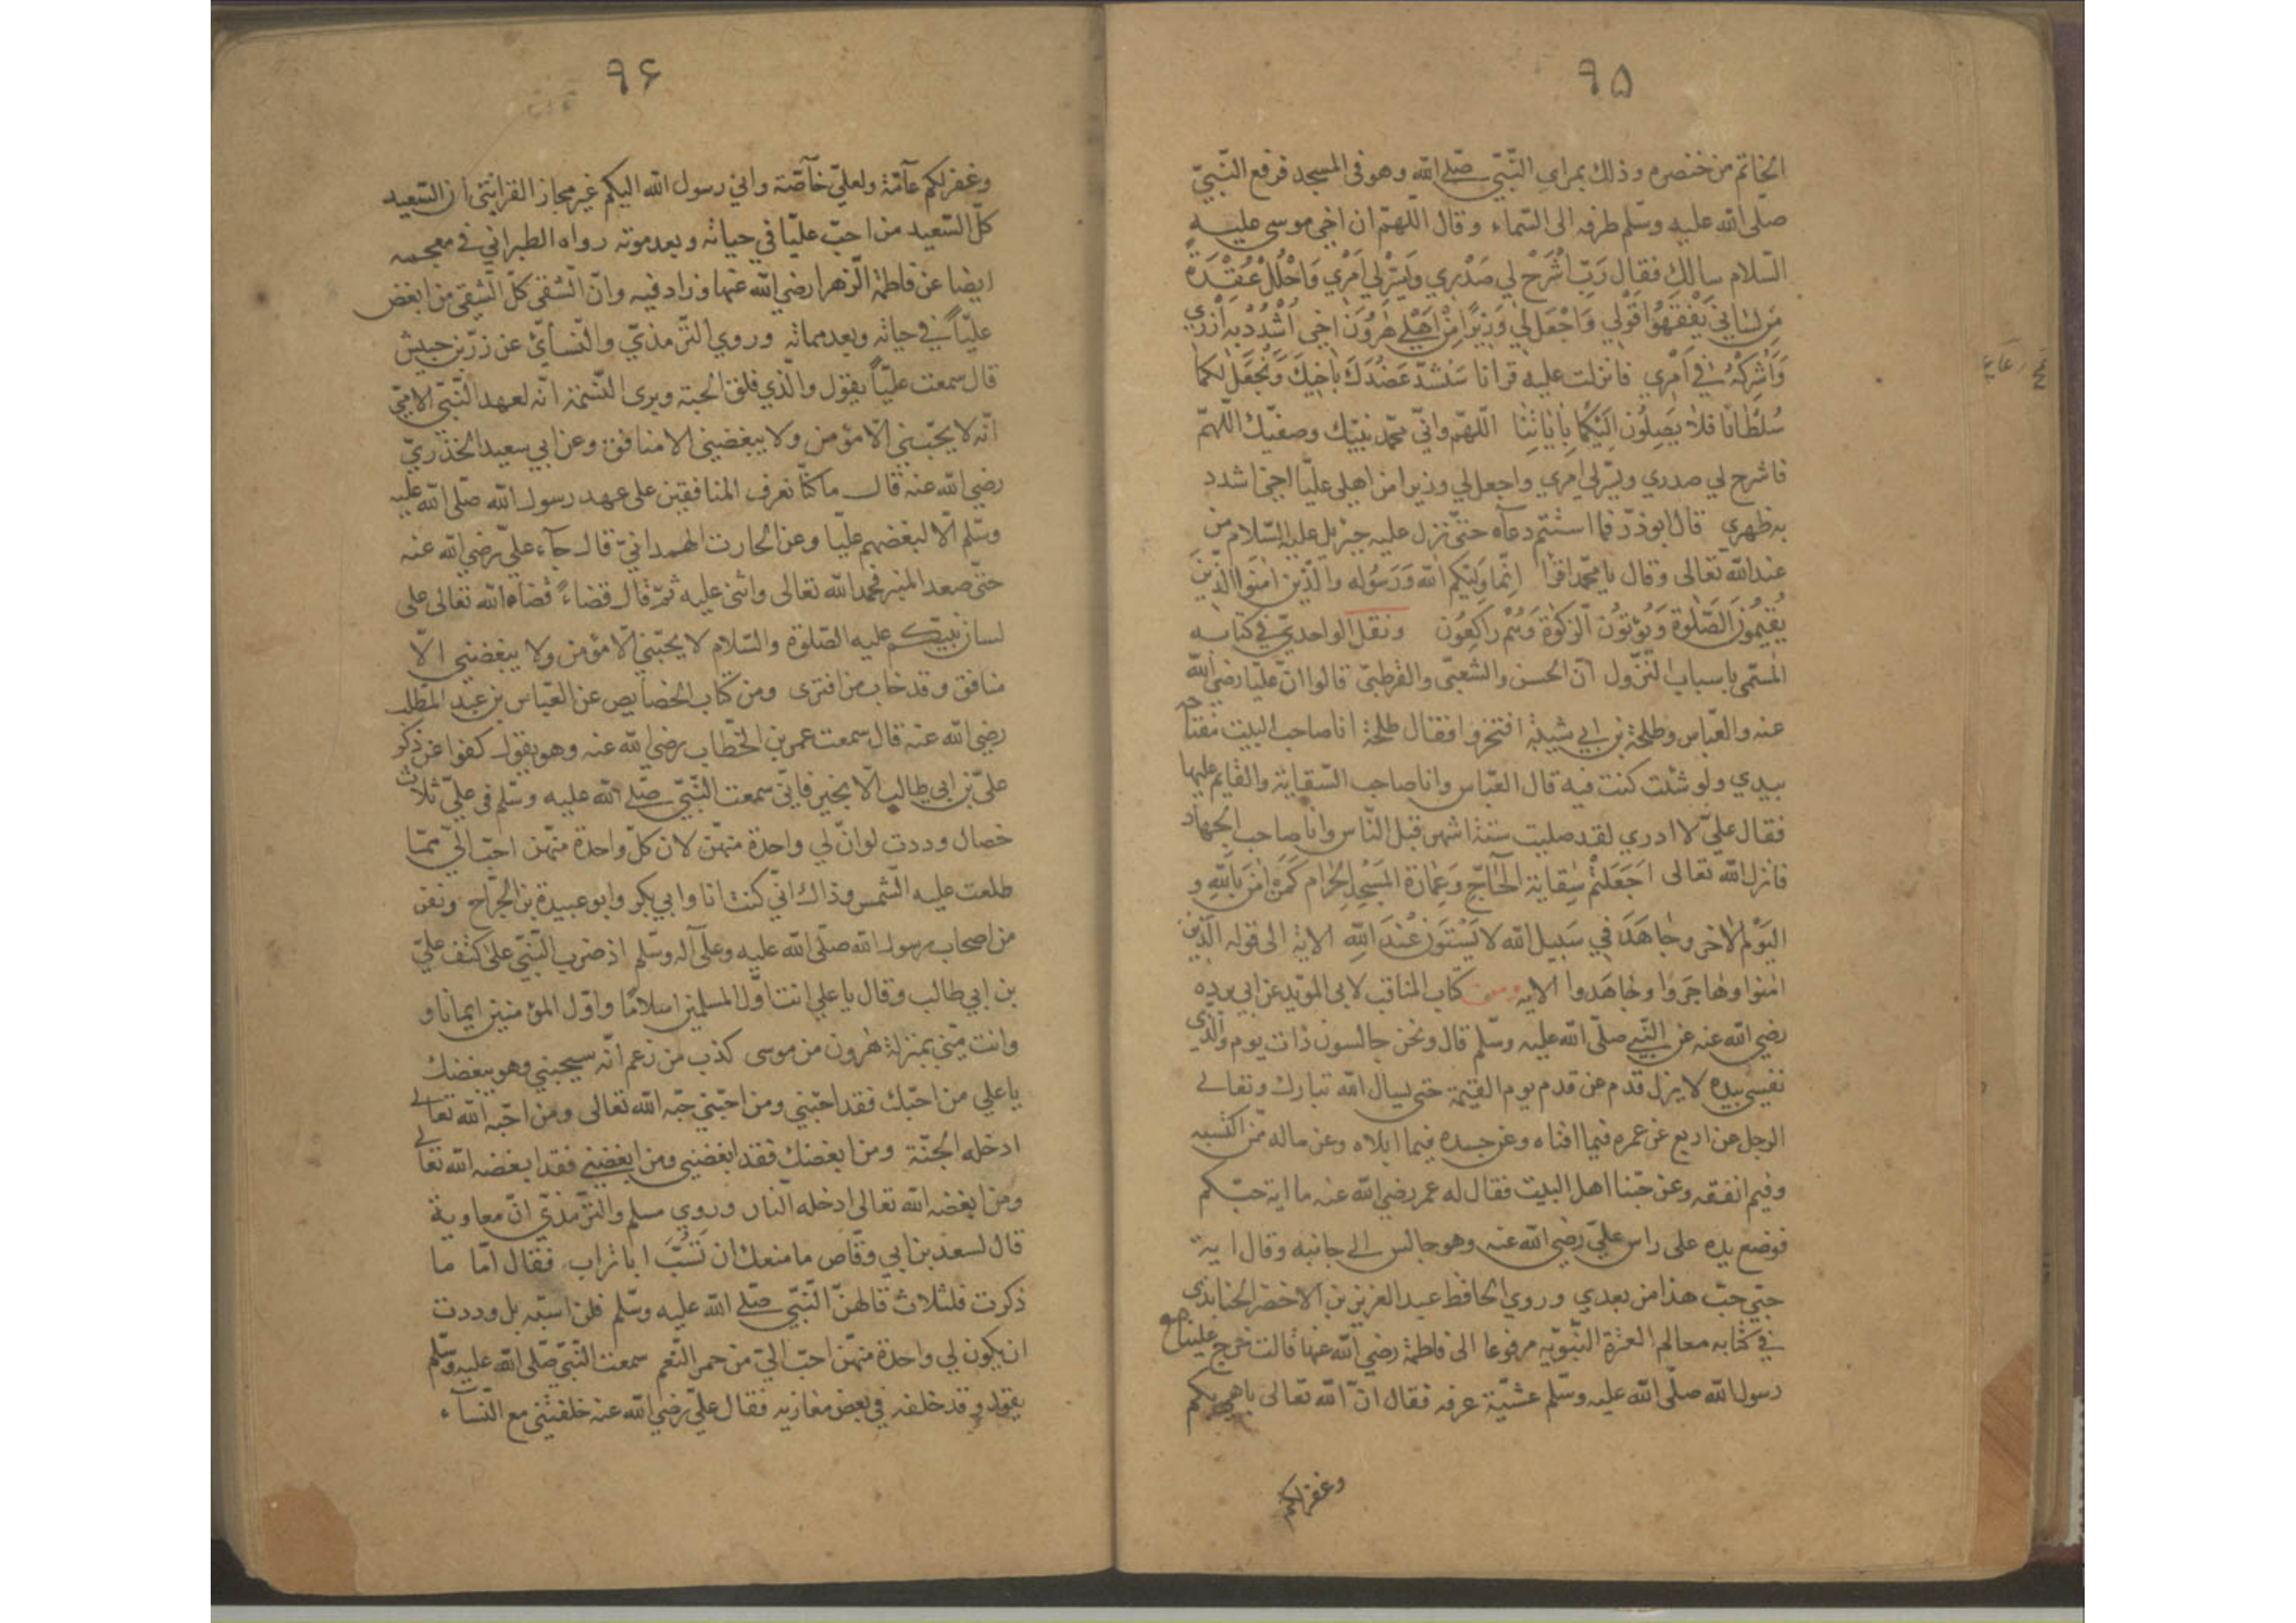 ٩٥
الخاتم من خنصره وذلك بمراى النّبيّ صلّى الله وهو فى المسجد فرفع النّبيّ
صلّى الله عليه وسلم طرفه الى السّماء وقال اللّهمّ ان اخى موسى عليه
السّلام سالك فقال رَبِّ اشْرَحْ لي صَدْرِي وَيَسِّرْلي اَمْرِي وَاحْلُلْ عُقْدَةً
مِن لِسَاني يَفْقَهُوا قَوْلي وَاجْعَل لي وَزِيرًا مِنْ اَهْلي هٰرُونَ اخي اُشْدُدْ بِه اَزْري
وَاَشْرِكْهُ في اَمْري فانزلت عليه قرانا سَنَشُدُّ عَضُدَكَ بِاَخِيكَ وَنَجْعَلُ لكما
سُلْطَانًا فَلَا يَصِلُونَ اِلَيْكُمَا بِاٰيَاتِنَا اللّهمّ وانّي محمّد نبيّك وصفيّك اللّهمّ
فاشرح لي صدري ويسّر لي امري واجعل لي وزيرا من اهلي عليّا اخى اشدد
به ظهري قال ابوذرّ فما استتم دعآه حتّى نزل عليه جبرئيل عليه السّلام من
عند الله تعالى وقال يا محمّد اقرأ اِنّما وَلِيّكم الله وَرَسُوله والّذين اٰمَنوا الّذينَ
يُقيمُونَ الصَّلٰوةَ وَيُؤْتُونَ الزكٰوةَ وَهُمْ رَاكِعُون ونقل الواحديّ في كتابه
المسمّى باسباب النّزول انّ الحسن والشعبىّ والقرطبىّ قالوا انّ عليّا رضي الله
عنه والعبّاس وطلحة بن ابي شيبة افتخروا فقال طلحة انا صاحب البيت مفتاحه
بيدي ولو شئت كنت فيه قال العبّاس وانا صاحب السّقاية والقايم عليها
فقال عليّ لا ادري لقد صليت ستّة اشهر قبل النّاس وانا صاحب الجهاد
فانزل الله تعالى اَجَعَلْتُمْ سِقايةَ الْحَاجِّ وَعِمَارَةَ المَسْجِدِ الحَرَامِ كَمَنْ اٰمَنَ بِاللهِ وَ
اليَوْمِ الاٰخر وجَاهَدَ في سَبيل الله لا يَسْتَوُنَ عْندَ اللّهِ الاية الى قوله الّذين
اٰمنوا وهَاجَروا وجَاهَدوا الايه ومن كتاب المناقب لابى المؤيد عن ابي برده
رضي الله عنه عن النّبي صلّى الله عليه وسلّم قال ونحن جالسون ذات يوم والّذى
نفسي بيده لا يزل قدم عن قدم يوم القيمة حتى يسال الله تبارك وتعالى
الرجل عن اربع عن عمره فيما افناه وعن جسده فيما ابلاه وعن ماله ممّن اكتسبه
وفيم انفقه وعن حبّنا اهل البيت فقال له عمر رضي الله عنه ما اية حبّكم
فوضع يده على راس عليّ رضي الله عنه وهو جالس الى جانبه وقال اية
حبّي حبّ هذا من بعدي وروي الحافظ عبد العزيز بن الاخضر الجنابذى
في كتابه معالم العترة النّبويه مرفوعا الى فاطمة رضي الله عنها قالت خرج علينا
رسول الله صلّى الله عليه وسلّم عشيّة عرفه فقال انّ الله تعالى باهى بكم
وغفر لكم
٩۶
وغفر لكم عآمّة ولعليّ خآصّة واني رسول الله اليكم غير مجاز القرابتى ان السّعيد
كلّ السّعيد من احبّ عليّا في حياته وبعد موته رواه الطبراني في معجمه
ايضا عن فاطمة الزّهرا رضي الله عنها وزاد فيه وانّ الشّقى كلّ الشّقى من ابغض
عليّاً في حياته وبعد مماته وروي التّرمذيّ والنّسائيّ عن زرّ بن حبيش
قال سمعت عليّاً يقول والّذي فلق الحبة وبرى النّسمة انّه لعهد النّبيّ الامّيّ
انّه لا يحبّني الّا مؤمن ولا يبغضيني الا منافق وعن ابي سعيد الخذريّ
رضي الله عنه قال ما كنّا نعرف المنافقين على عهد رسول الله صلّى الله عليه
وسلّم الّا لبغضهم عليّا وعن الحارت الهمدانيّ قال جآء عليّ رضي الله عنه
حتّى صعد المنبر فحمد الله تعالى واثنى عليه ثمّ قال قضاءً قضاه الله تعالى على
لسان نبيّكم عليه الصّلوة والسّلام لا يحبّني الّا مؤمن ولا يبغضني الّا
منافق وقد خاب من افترى ومن كتاب الخصايص عن العبّاس بن عبد المطّلب
رضي الله عنه قال سمعت عمر بن الخطّاب رضي الله عنه وهو يقول كفوا عن ذكر
عليّ بن ابي طالب الّا بخير فانّي سمعت النّبيّ صلّى الله عليه وسّلم في عليّ ثلاث
خصال وددت لو انّ لي واحدة منهنّ لان كلّ واحدة منهنّ احبّ اليّ ممّا
طلعت عليه الشّمس وذاك انّي كنت انا وابي بكر وابو عبيدة بن الجرّاح ونفر
من اصحاب رسول الله صلّى الله عليه وعلى آله وسّلم اذ ضرب النّبيّ على كتف عليّ
بن ابي طالب وقال يا علي انت اوّل المسلمين اسلامًا واوّل المؤمنين ايمانا و
وانت منّي بمنزلة هٰرون من موسى كذب من زعم انّه سيحبني وهو يبغضك
يا علي من احبّك فقد احبّني ومن احبّني حبّه الله تعالى ومن احبّه الله تعالى
ادخله الجنّة ومن ابغضك فقد ابغضني ومن ابغضني فقد ابغضه الله تعالى
ومن ابغضه الله تعالى ادخله النار وروي مسلم والترّمذيّ انّ معاوية
قال لسعد بن ابي وقّاص ما منعك ان تَسُبَّ ابا تراب فقال امّا ما
ذكرت فلثلاث قالهنّ النّبّي صلّى الله عليه وسلم فلن اسبّه بل وددت
ان يكون لي واحدة منهنّ احبّ اليّ من حمر النّعم سمعت النّبيّ صلّى الله عليه وسّلم
يقول وقد خلفه في بعض مغازيه فقال عليّ رضي الله عنه خلفتني مع النّسآء